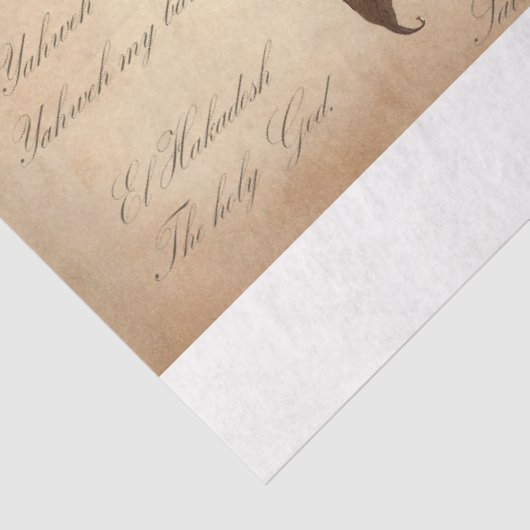 Yahweh
Yahweh my
El Hakadosh
The holy God.